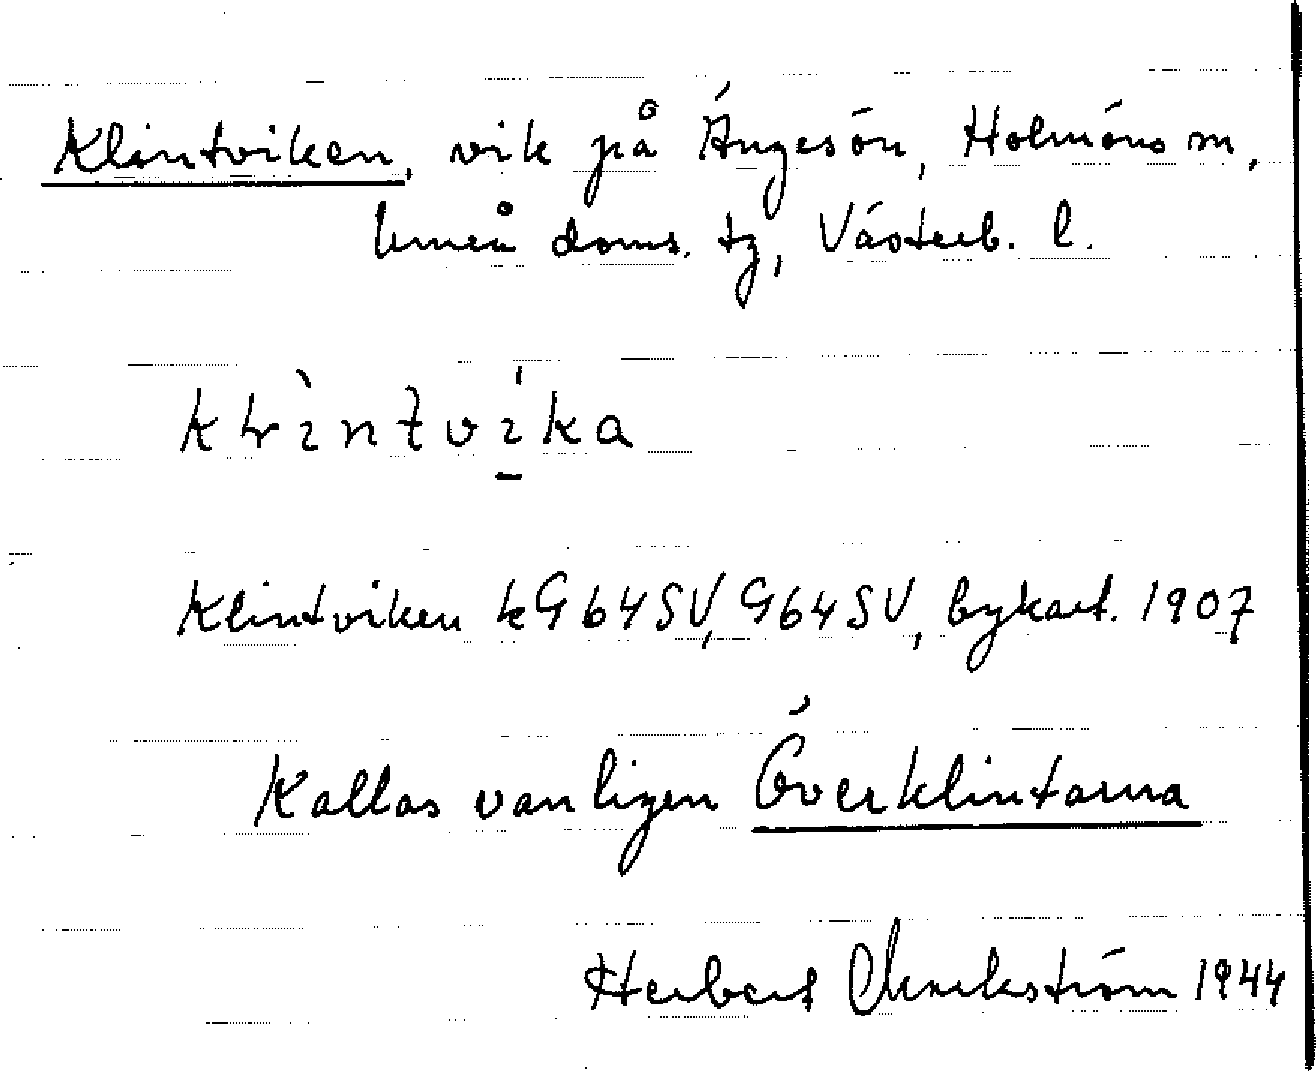 Klintviken, vik på Ängesön, Holmöns sn,
Umeå doms. tg, Västerb. l.
Klintviken kG64SV, G64SV, bykart. 1907
Kallas vanligen Överklintarna
Herbert 1944